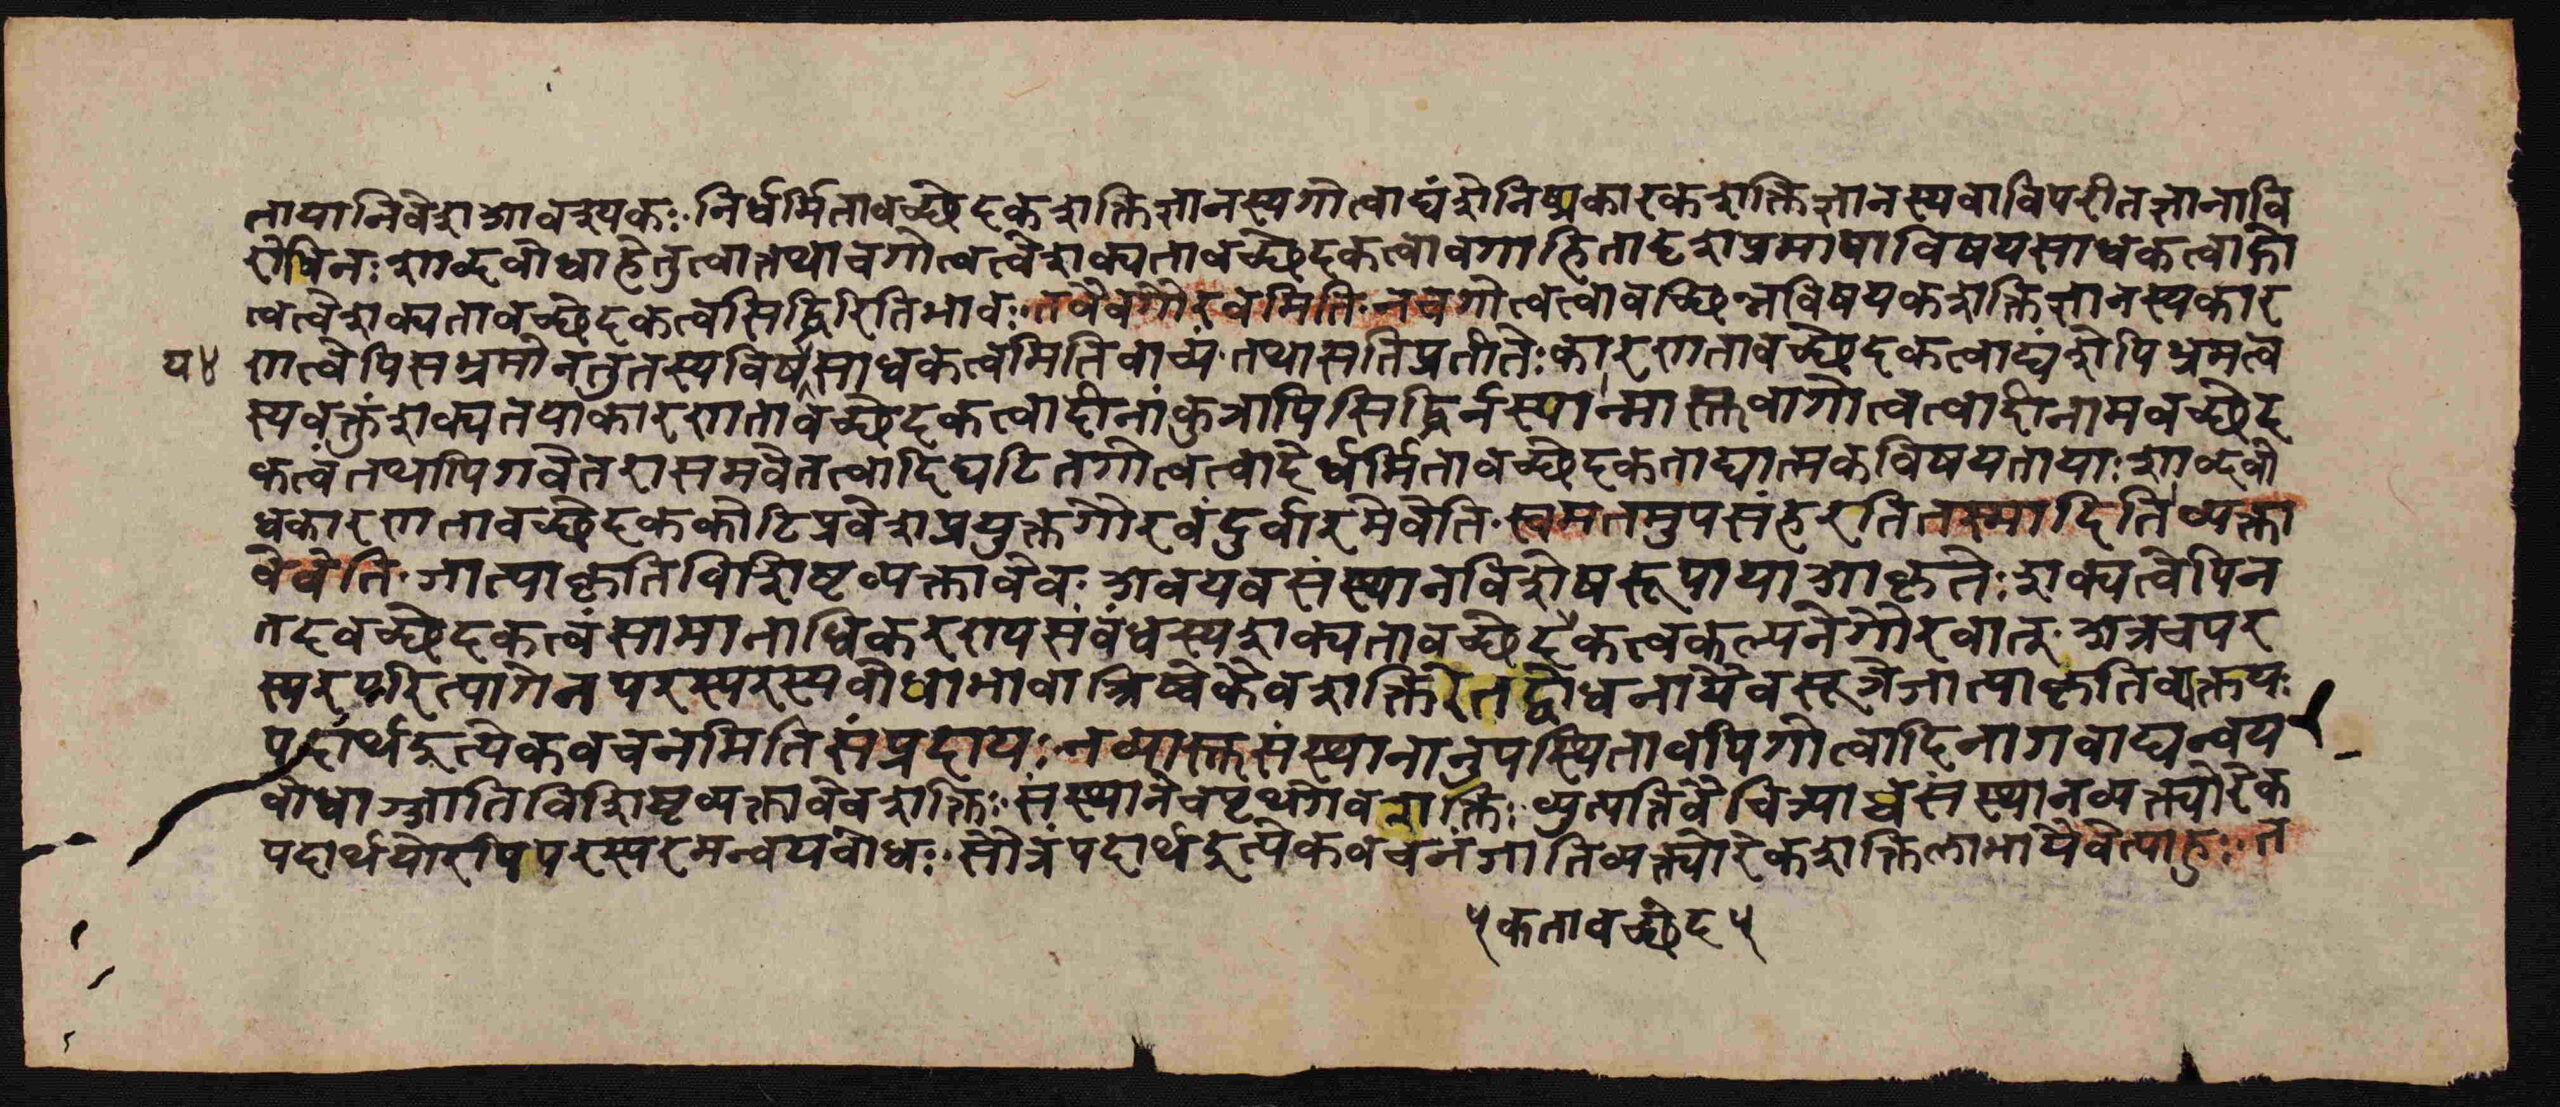 ताया निवेश आवश्यकः निर्धर्मितावच्छेदकशक्तिज्ञानस्य गोत्वाद्यंशे निष्प्रकारकशक्तिज्ञानस्य वा विपरीतज्ञानावि
रोधिनः शाब्दबोधाहेतुत्वात्तथा च गोत्वत्वे शक्यतावच्छेदकत्वावगाहितादृशप्रमाया विषयसाधकत्वाद्गो
त्वत्वे शक्यतावच्छेदकत्वसिद्धिरिति भावः तवैव गौरवमिति न च गोत्वत्वावच्छिन्नविषयकशक्तिज्ञानस्य कार
य ४
णत्वेपि स भ्रमो न तु तस्य विषसाधकत्वमिति वाच्यं तथा सति प्रतीतेः कारणतावच्छेदकत्वाद्यंशेपि भ्रमत्व
स्य वक्तुं शक्यतया कारणतावच्छेदकत्वादीनां कुत्रापि सिद्धिर्न स्यान्मास्तु वा गोत्वत्वादीनामवच्छेद
कत्वं तथापि गवेतरासमवेतत्वादिघटितगोत्वत्वादेर्धर्मितावच्छेदकताद्यात्मकविषयतायाः शाब्दबो
धकारणतावच्छेदककोटिप्रवेशप्रयुक्तगौरवं दुर्वारमेवेति स्वमतमुपसंहरति तस्मादिति व्यक्ता
वेवेति जात्याकृतिविशिष्टव्यक्तावेव अवयवसंस्थानविशेषरूपाया आकृतेः शक्यत्वेपि न
तदवच्छेदकत्वं सामानाधिकरण्यसंबंधस्य शक्यतावच्छेदकत्वकल्पने गौरवात् अत्र च पर
स्परपरित्यागेन परस्परस्य बोधाभावात्त्रिष्वेकैव शक्तिरेतद्बोधनायैव सूत्रे जात्याकृतिव्यक्तयः
पदार्थ इत्येकवचनमिति संप्रदायः नव्यास्तु संस्थानानुपस्थितावपि गोत्वादिना गवाद्यन्वय
बोधाज्जातिविशिष्टव्यक्तावेव शक्तिः संस्थाने च पृथगेव शक्तिः व्युत्पत्तिवैचित्र्याच्च संस्थानव्यक्त्योरेक
पदार्थयोरपि परस्परमन्वयबोधः सौत्रं पदार्थ इत्येकवचनं जातिव्यक्त्योरेकशक्तिलाभायैवेत्याहुः त
५ कतावच्छेद ५